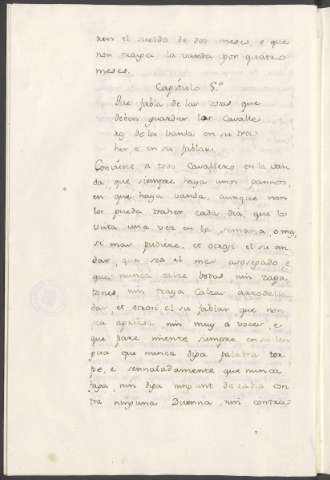 non el sueldo de dos meses, e que
non traya la vanda por quatro
meses.
Capitulo 5.º
Que fabla de las cosas que
deben guardar los Cavalle
ros de la vanda en su tra
her e en su fablar.
Conviene a todo Cavallero en la van
da, que siempre haya unos pannos
en que haya vanda, aunque non
los pueda traher cada dia, que los
vista una vez en la semana, o mas
si mas pudiere, et otrosi el su an
dar, que sea el mas asosegado, e
que nunca calze botas nin zapa
tones, nin traya calzas
dar et otrosi el su fablar que non
sea apriesa, nin muy a voces, e
que pare mientes siempre en su len
gua que nunca diga palabra tor
pe, e sennaladamente que nunca
faga, nin diga ninguna cosa con
tra ninguna Duenna, nin contra